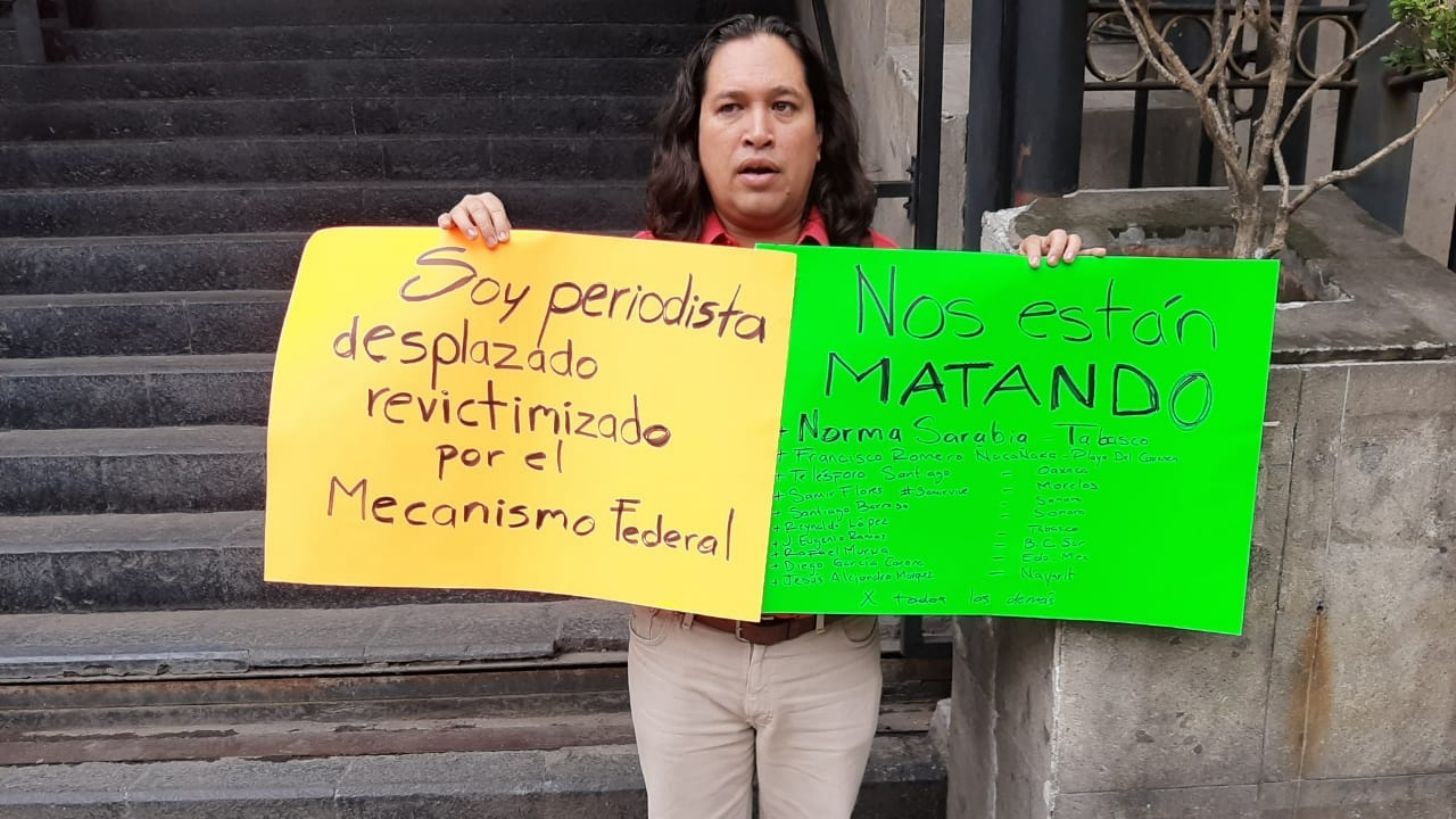 Soy periodista
desplazado
revictimizado
por el
Mecanismo Federal
Nos están
MATANDO
+ Norma Sarabia - Tabasco
+ Francisco Romero Nacanaca - Playa Del Carmen
+ Telésporo Santiago = Oaxaca
+ Samir Flores #Samirvive = Morelos
+ Santiago Barroso = Sonora
+ Reynaldo López = Sonora
+ J. Eugenio Ramos = Tabasco
+ Rafael Murua = B.C. Sur
+ Diego García Corona = Edo. Mex
+ Jesús Alejandro Márquez = Nayarit
X todos los demás